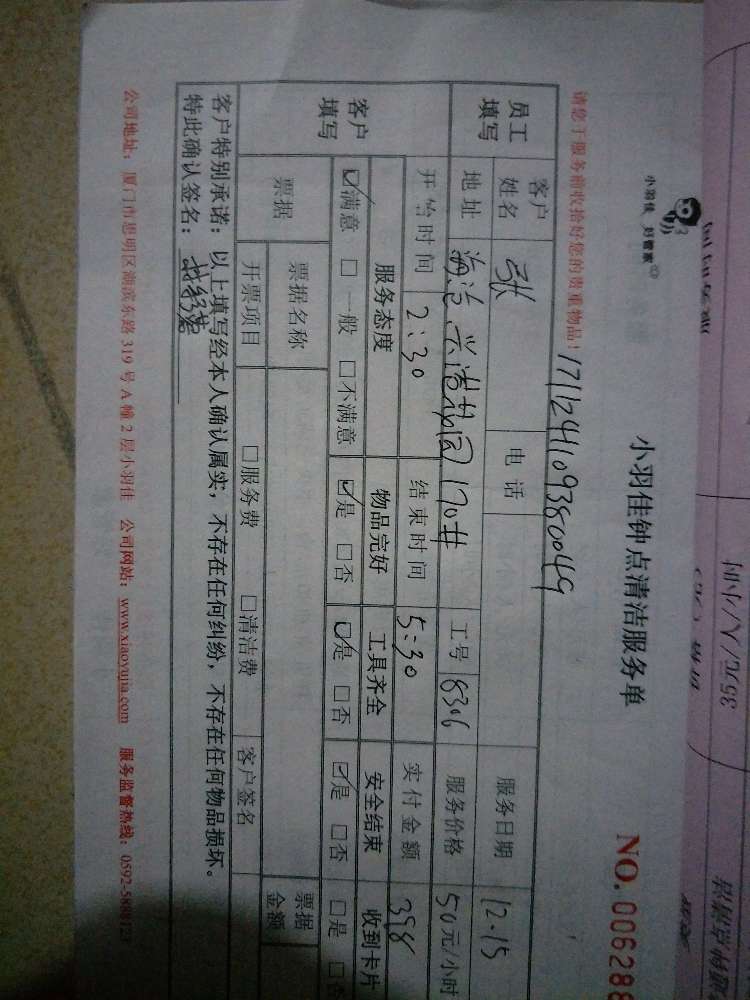 小羽佳 好管家
小羽佳钟点清洁服务单
NO. 006288
请您于服务前收拾好您的贵重物品！
1711241109380049
员工填写 客户姓名 张 电话 服务日期 12.15
地址 海沧 兴港花园 170# 工号 8306 服务价格 50元/小时
开始时间 2:30 结束时间 5:30 实付金额 398
客户填写 服务态度 物品完好 工具齐全 安全结束 收到卡片
☑满意 □一般 □不满意 ☑是 □否 ☑是 □否 ☑是 □否 □是 □否
票据 票据名称 票据金额
开票项目 □服务费 □清洁费 客户签名
客户特别承诺：以上填写经本人确认属实，不存在任何纠纷，不存在任何物品损坏。
特此确认签名：
公司地址：厦门市思明区湖滨东路 319 号 A 幢 2 层小羽佳 公司网站：www.xiaoyujia.com 服务监督热线：0592-5888123